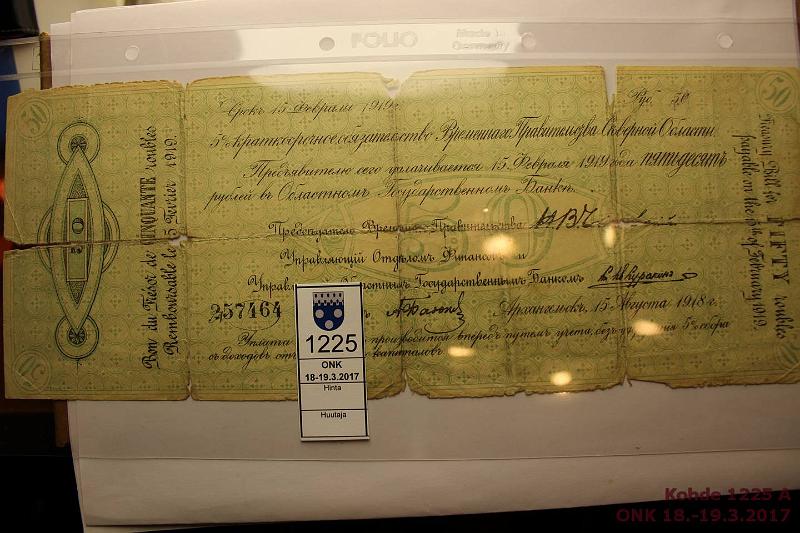 FOLIO
Made in
Germany
50
50
Срокъ 15 Февраля 1919 г.
Руб. 50
5% краткосрочное обязательство Временнаго Правительства Сѣверной Области
Предъявителю сего уплачивается 15 Февраля 1919 года пятьдесятъ
рублей въ Областномъ Государственномъ Банкѣ.
Предсѣдатель Временнаго Правительства
Управляющій Отдѣломъ Финансовъ
Управляющій Областнымъ Государственнымъ Банкомъ
257464
Архангельскъ, 15 Августа 1918 г.
Уплата производится впередъ путемъ учета, безъ 5% сбора
съ доходовъ отъ капиталовъ
Bon du Trésor de CINQUANTE roubles
Remboursable le 15 Février 1919.
Treasury Bill for FIFTY roubles
payable on the 15th of February 1919.
50
50
1225
ONK
18-19.3.2017
Hinta
Huutaja
Kohde 1225 A
ONK 18.-19.3.2017